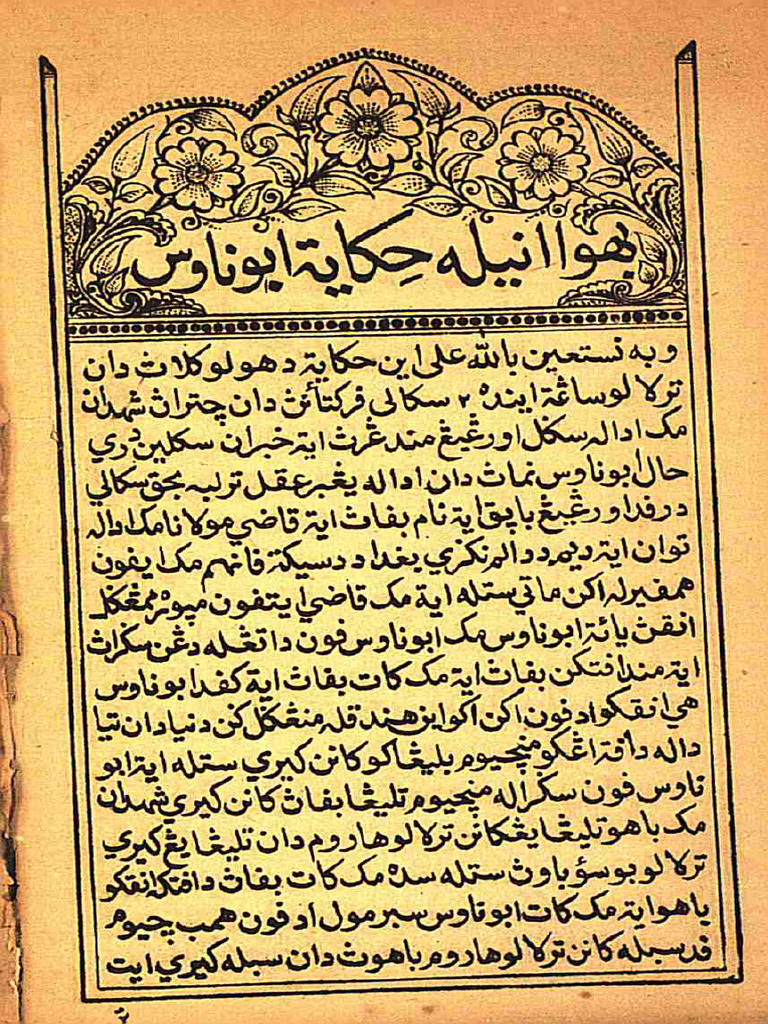 بهوا انيله حكاية ابو ناوس
وبه نستعين بالله على اين حكاية دهولو كلاڽ دان
ترلالو ساڠة اينده ٢ سكالي فركتأنڽ دان چتراڽ شهدان
مك اداله سكل اورڠيڠ مندڠرڽ اية خبران سكلين دري
حال ابو ناوس نماڽ دان اداله يڠبر عقل ترلبه بجق سكالي
درفد اورڠيڠ باپق اية نام بفاڽ اية قاضي مولانا مك اداله
توان اية ديم ددالم نكري بغداد دسيكتة فانهم مك ايفون
همفيرله اكن ماتي ستله اية مك قاضي ايتفون مپوره ممڠكل
انقڽ يائة ابو ناوس مك ابو ناوس فون داتڠله دڠن سكراڽ
اية مندافتكن بفاڽ اية مك كات بفاڽ اية كفد ابو ناوس
هي انقكو ادفون اكن اكو اين هندقله منڠكلكن دنيا دان تيا
داله دافة اڠكو منچيوم بليڠاكو كانن كيري ستله اية ابو
ناوس فون سكراله منچيوم تليڠا بفاڽ كانن كيري شهدان
مك باهو تليڠا يڠكانن ترلالو هاروم دان تليڠا يڠ كيري
ترلالو بوسؤ باوڽ ستله سده مك كات بفاڽ دافتكه انقكو
باهو اية مك كات ابو ناوس سبرمول ادفون همب چيوم
فد سبله كانن ترلالو هاروم باهوڽ دان سبله كيري ايت